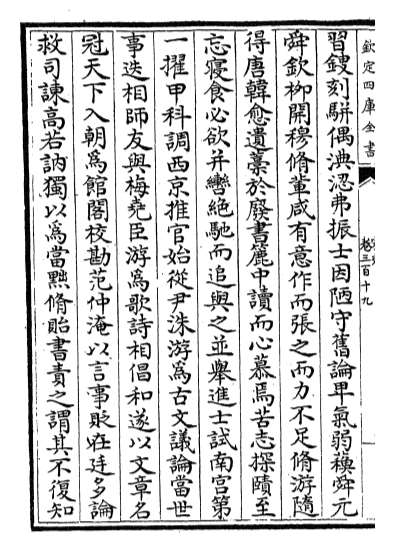 欽定四庫全書
卷三百十九
習鎪刻駢偶淟涊弗振士因陋守舊論卑氣弱蘇舜元
舜欽柳開穆脩輩咸有意作而張之而力不足脩游隨
得唐韓愈遺藁於廢書簏中讀而心慕焉苦志探賾至
忘寢食必欲并轡絕馳而追與之並舉進士試南宮第
一擢甲科調西京推官始從尹洙游為古文議論當世
事迭相師友與梅堯臣游為歌詩相倡和遂以文章名
冠天下入朝為館閣校勘范仲淹以言事貶在廷多論
救司諫高若訥獨以為當黜脩貽書責之謂其不復知